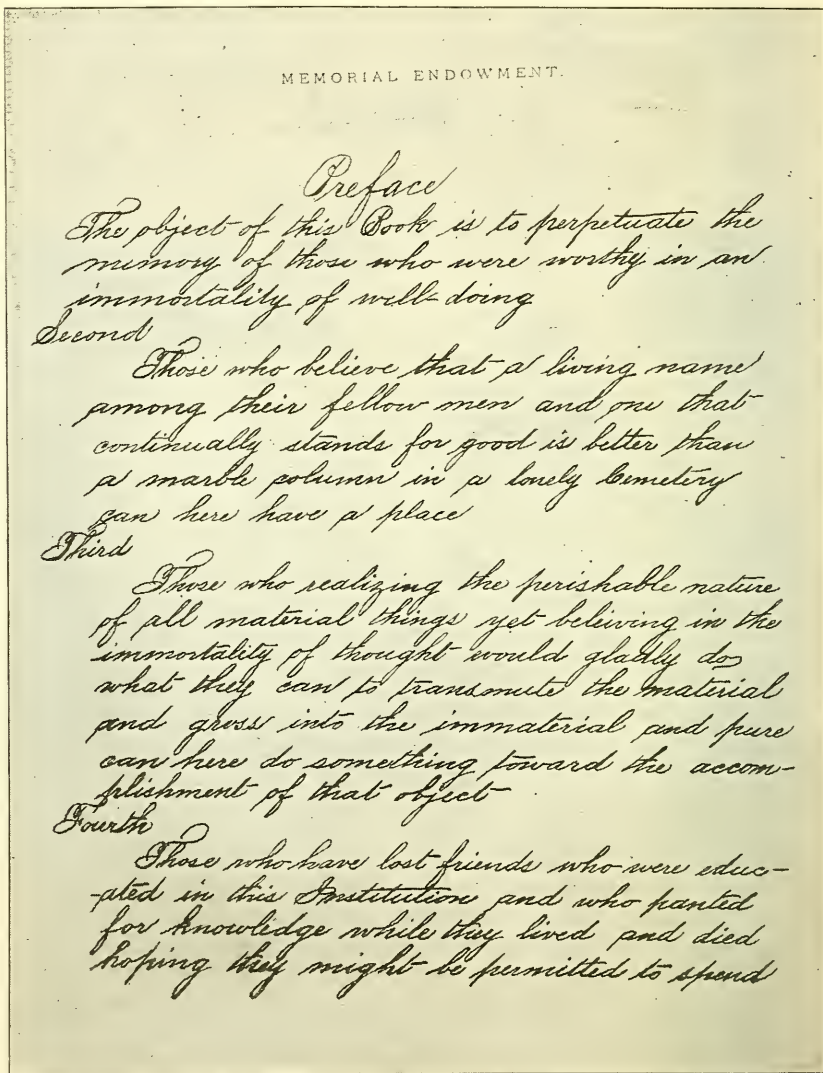 MEMORIAL ENDOWMENT.
Preface
The object of this Book is to perpetuate the
memory of those who were worthy in an
immortality of well-doing
Second
Those who believe that a living name
among their fellow men and one that
continually stands for good is better than
a marble column in a lonely Cemetery
can here have a place
Third
Those who realizing the perishable nature
of all material things yet beleiving in the
immortality of thought would gladly do
what they can to transmute the material
and gross into the immaterial and pure
can here do something toward the accom-
plishment of that object
Fourth
Those who have lost friends who were educ-
-ated in this Institution and who panted
for knowledge while they lived and died
hoping they might be permitted to spend